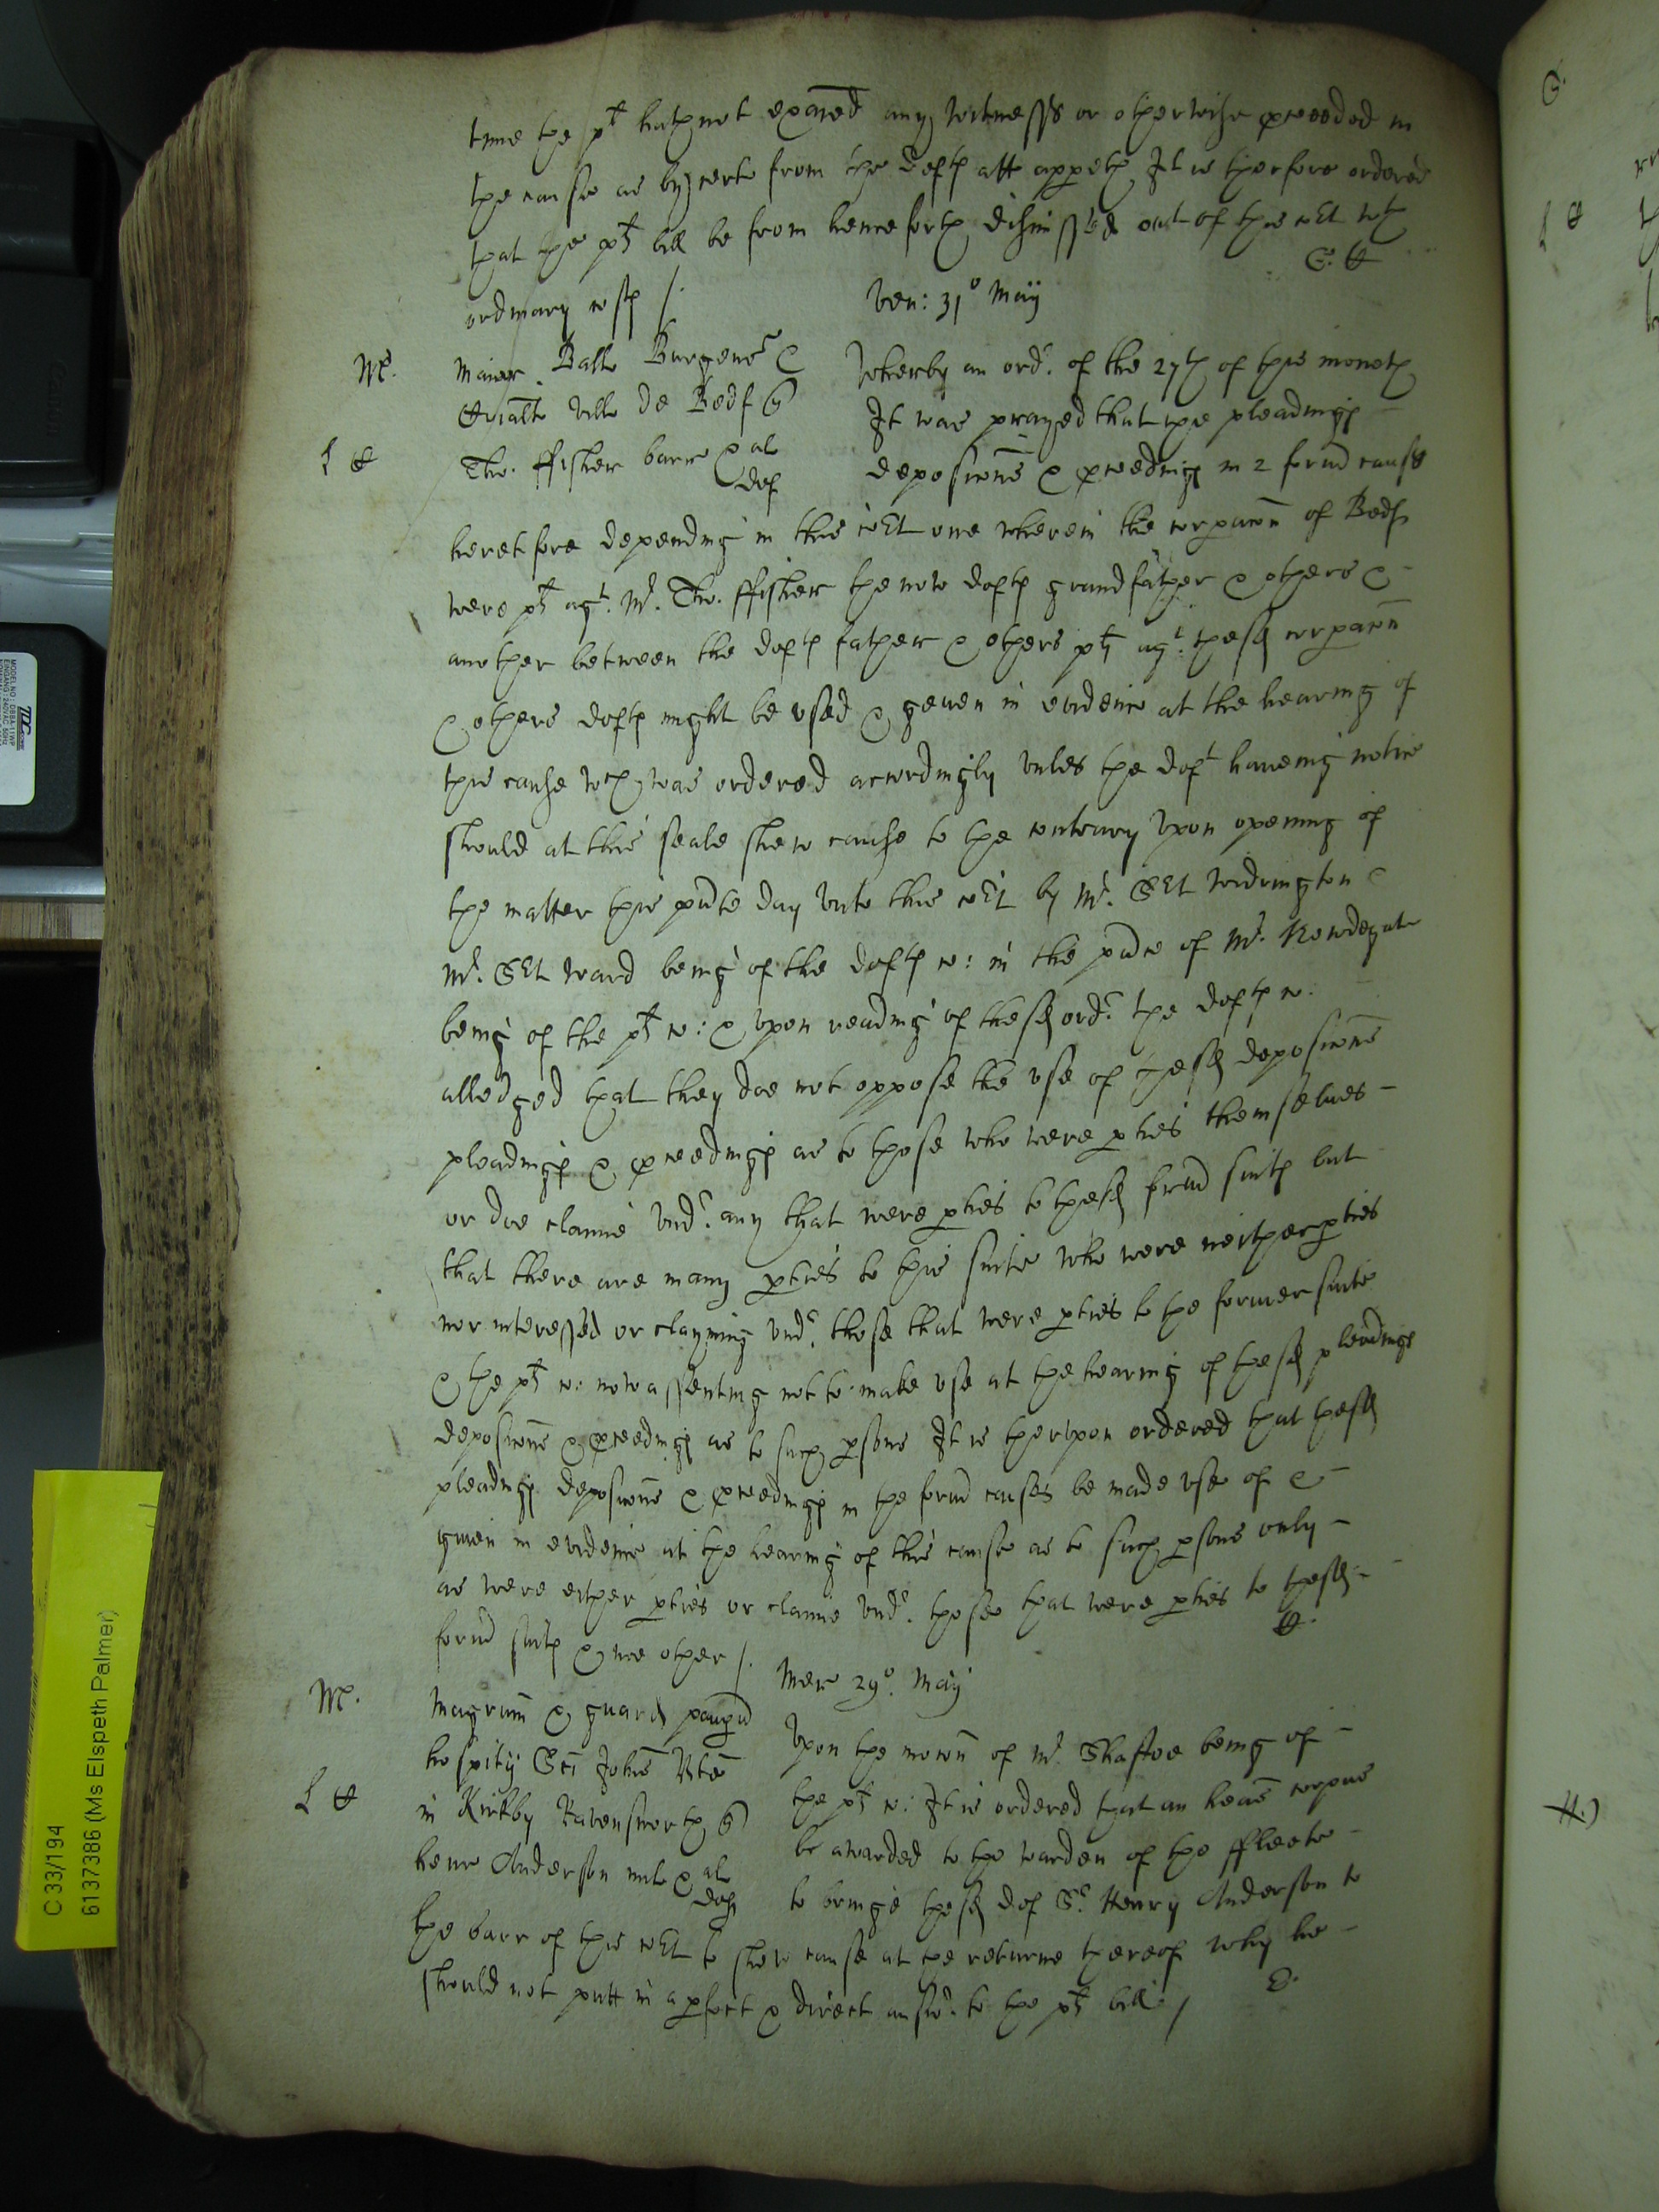 time the plt hath not exãied any witnesses or otherwise proceeded in
the cause as by certe from the defts att appeth It is therfore ordered
that the plts bill be from henceforth dismissed out of this cort wth
ordinary costs /.
Ven: 31° Maij
Maior Ballis Burgens &
Coĩalt ville de Bedf
Tho. ffisher barr & al
def
Wherby an ordr. of the 27th of this moneth
It was prayed that the pleadings
deposicõns & proceedings in 2 formr causes
heretofore depending in this cort one wherein the corporacõn of Bedf
were plts agt. Mr. Tho. ffisher the now defts grandfather & others &
another between the defts father & others plts agt. the sd corporacõn
& others defts might be vsed & geuen in evidence at the hearing of
this cause wch was ordered accordingly vnles the deft haueing notice
should at this seale shew cause to the contrary Vpon opening of
the matter this pnte day vnto this cort by Mr. Srt Widrington &
Mr. Srt Ward being of the defts co: in the pnce of Mr. Newdegate
being of the plts co: & vpon reading of the sd ordr. the defts co:
alledged that they doe not oppose the vse of the sd deposicõns
pleadings & proceedings as to those who were pties themselues
or doe clayme vndr. any that were pties to the sd formr suits but
that there are many pties to this suite who were neither pties
nor interessed or clayming vndr. those that were pties to the former suite
& the plts co: now assenting not to make vse at the hearing of the sd pleadings
deposicõns & proceedings as to such psons It is thervpon ordered that the sd
pleadings deposicõns & proceedings in the formr causes be made vse of &
giuen in evidence at the hearing of this cause as to such psons only
as were either pties or clayme vndr. those that were pties to the sd
formr suits & noe other /.
Mer 29°. Maij
Magrum & guard paupũ
hospitij Scĩ Johĩs Bte
in Kirkby Ravensworth
henr Anderson mil & al
defts
Vpon the mocõn of Mr. Shaftoe being of
the plts co: It is ordered that an heãs corpus
be awarded to the warden of the ffleete
to bringe the sd def Sr. Henry Anderson to
the barr of this cort to shew cause at the returne thereof why he
should not putt in a pfect & direct answr. to the plts bill /
C 33/194
6137386 (Ms Elspeth Palmer)